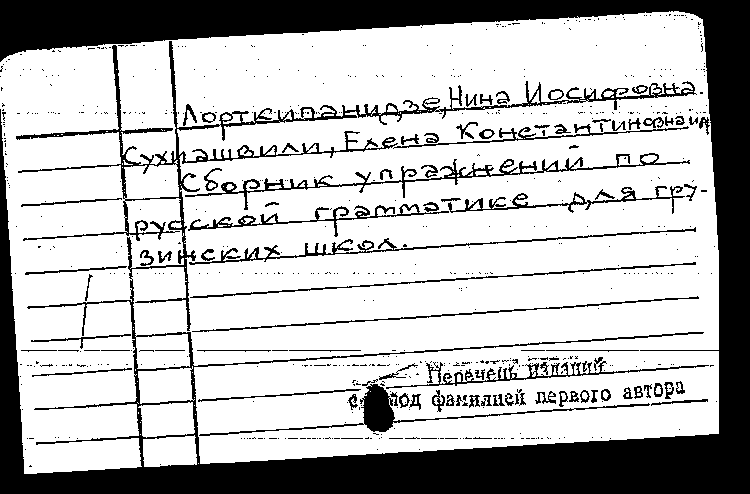 Лорткипанидзе, Нина Иосифовна
Сухиашвили, Елена Константиновна и др
Сборник упражнений по
русской грамматике для гру-
зинских школ.
Перечень изданий
см. под фамилией первого автора